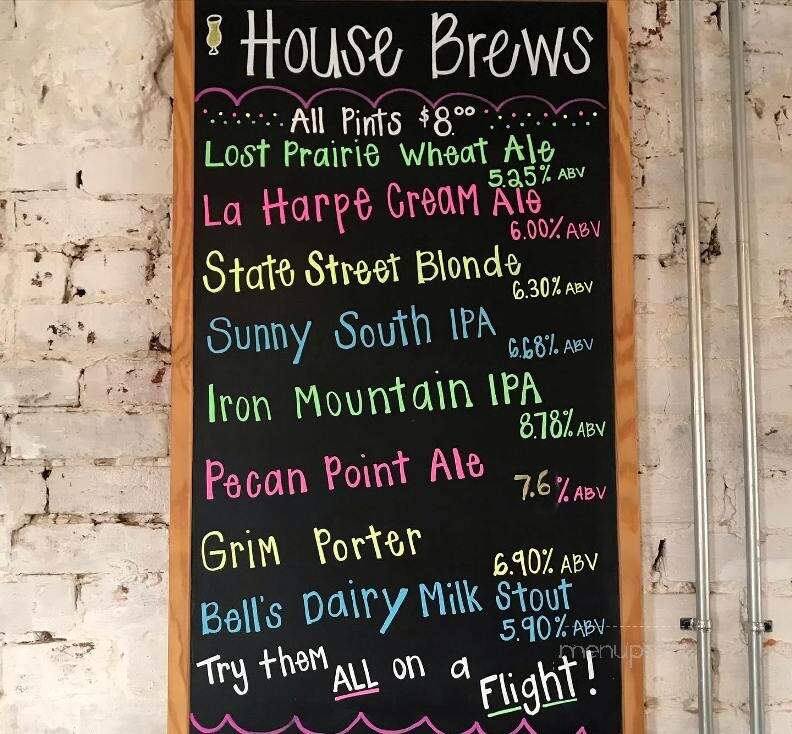 House Brews
All Pints $8.00
Lost Prairie Wheat Ale
5.25% ABV
La Harpe Cream Ale
6.00% ABV
State Street Blonde
6.30% ABV
Sunny South IPA
6.68% ABV
Iron Mountain IPA
8.78% ABV
Pecan Point Ale
7.6% ABV
Grim Porter
6.90% ABV
Bell's Dairy Milk Stout
5.90% ABV
Try them ALL on a Flight!